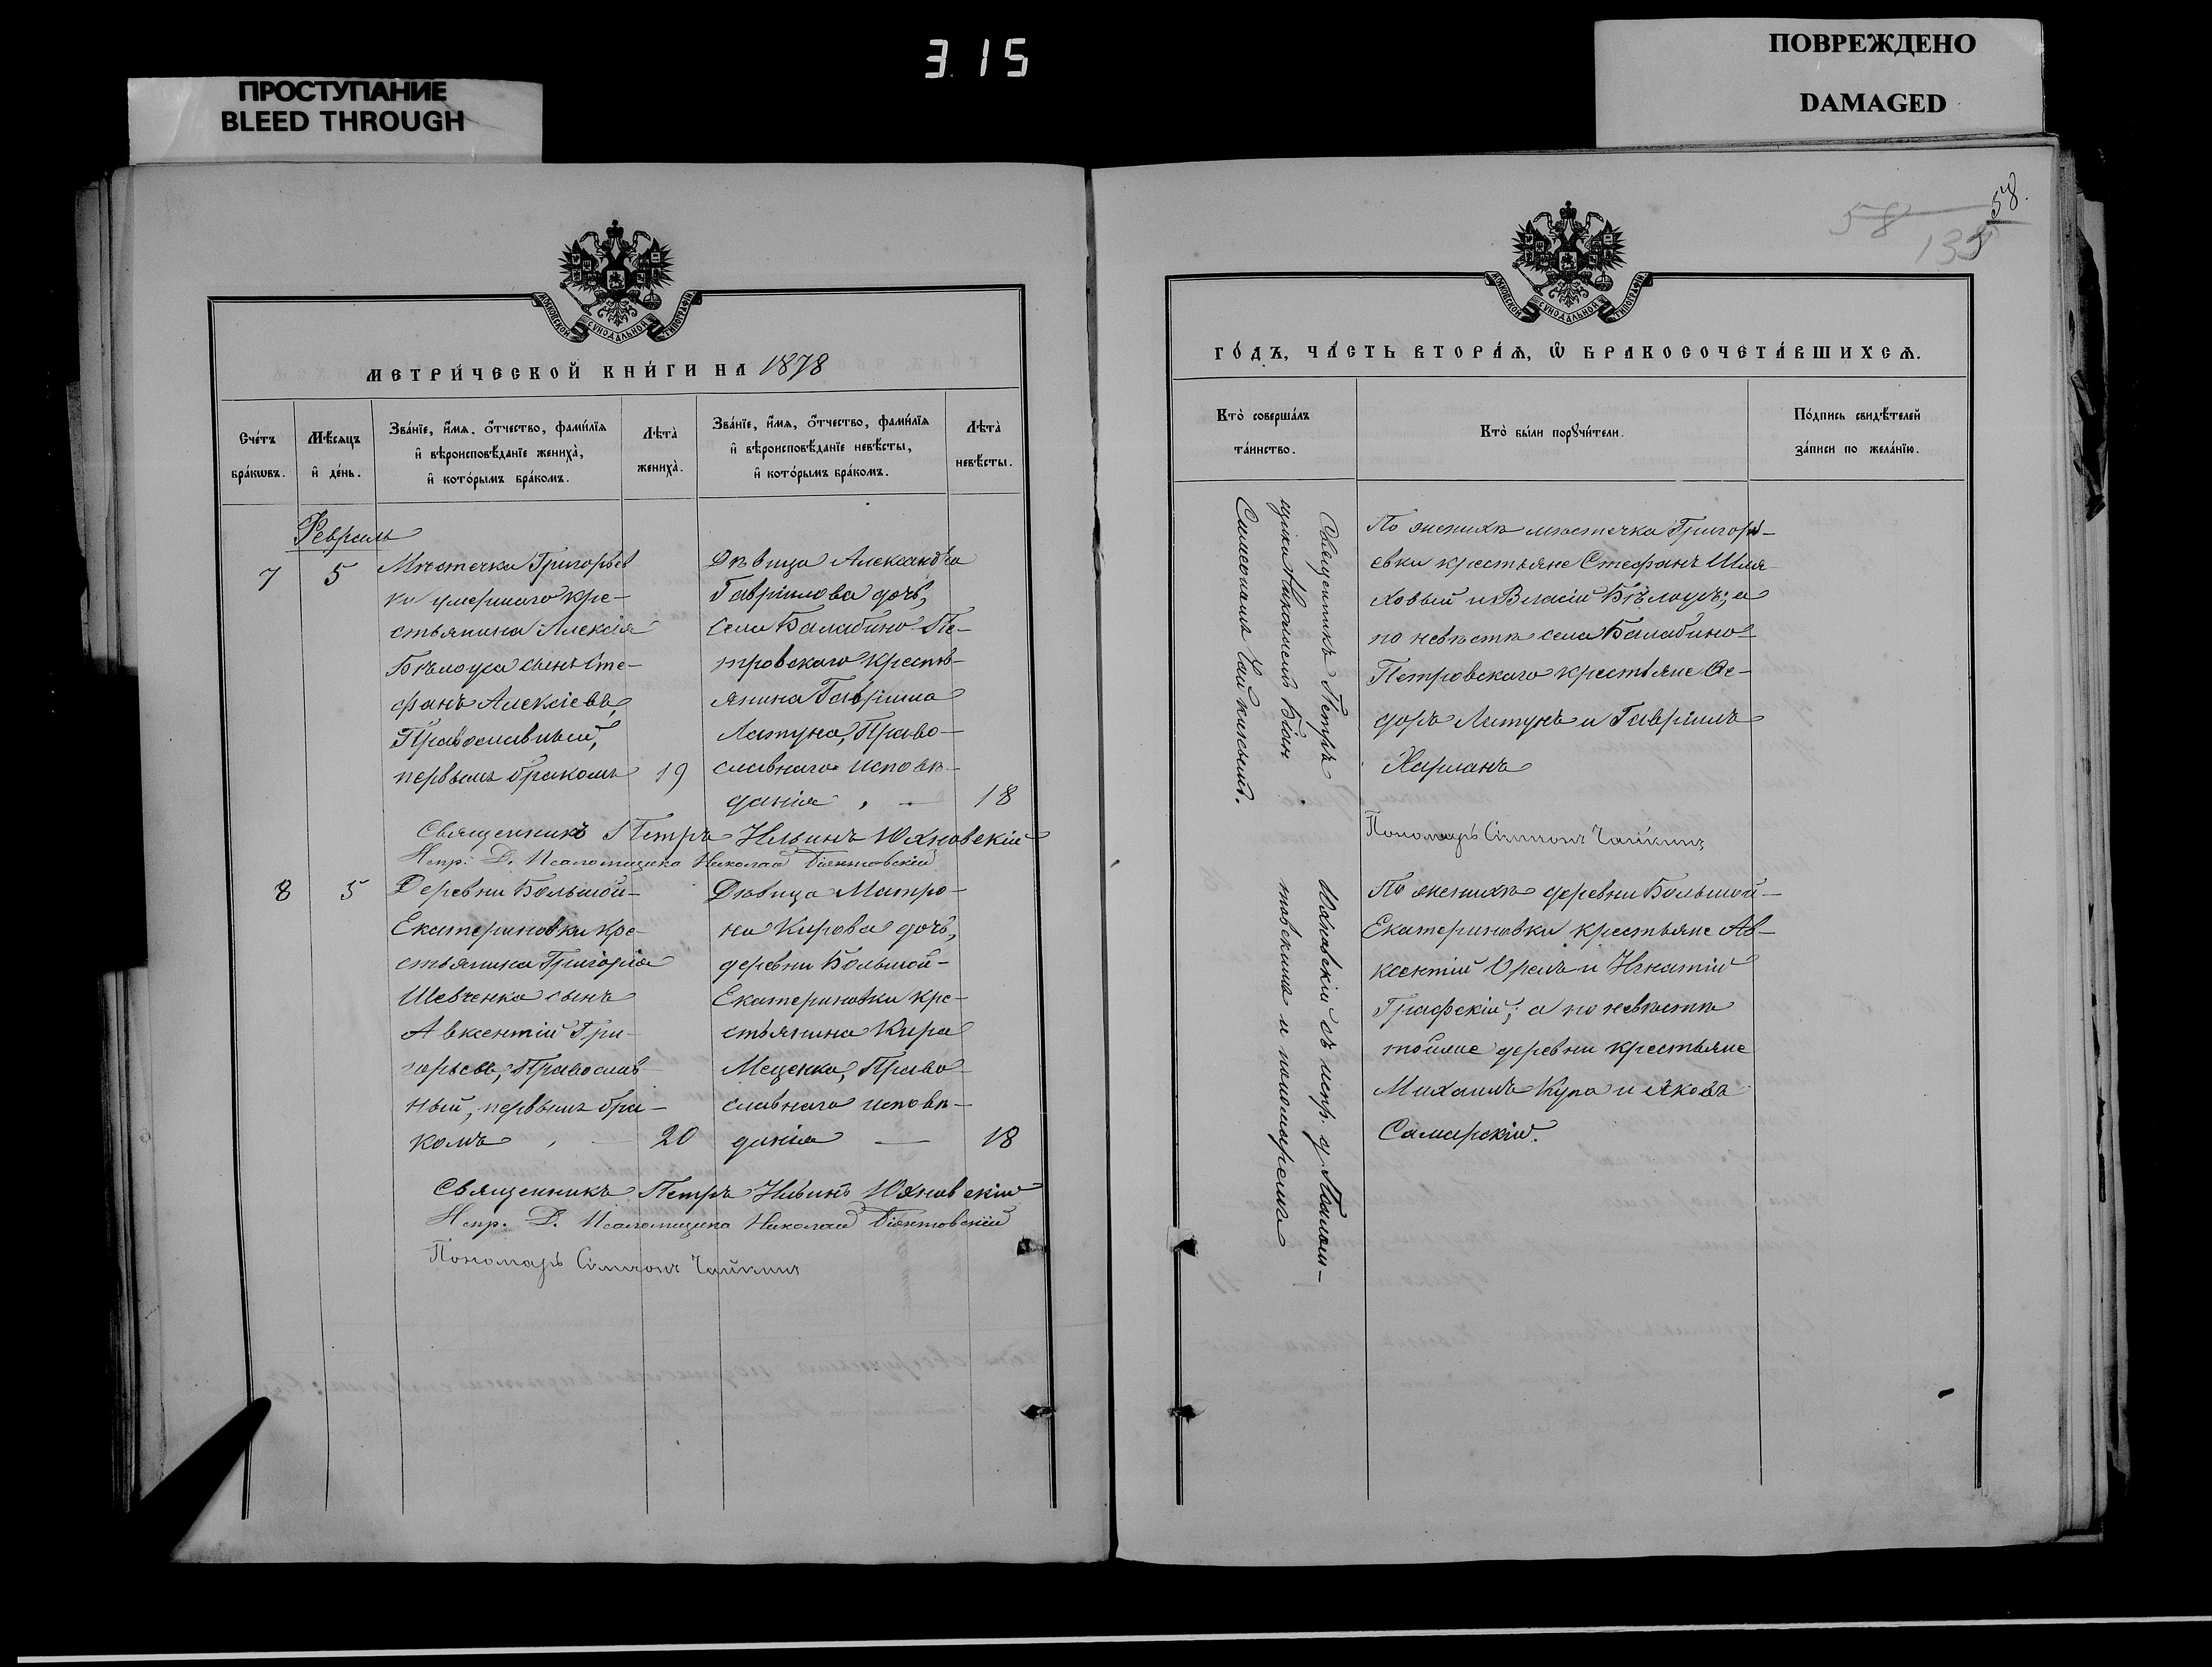 3.15
ПРОСТУПАНИЕ
BLEED THROUGH
ПОВРЕЖДЕНО
DAMAGED
58.
58
135
МОСКОВСКОЙ СѴНОДАЛЬНОЙ ТИПОГРАФІИ
МЕТРИ́ЧЕСКОЙ КНИ́ГИ НА 1878
Сче́тъ бра́кωвъ.
Мѣ́сяцъ и҆ де́нь.
Зва́нїе, и҆́мя, ѻ҆́тчество, фами́лїя
и҆ вѣроисповѣ́данїе жениха̀,
и҆ кото́рымъ бра́комъ.
Лѣта̀ жениха̀.
Зва́нїе, и҆́мя, ѻ҆́тчество, фами́лїя
и҆ вѣроисповѣ́данїе невѣ́сты,
и҆ кото́рымъ бра́комъ.
Лѣта̀ невѣ́сты.
Февраль
7
5
Мѣстечка Григорьев
ки умершаго кре-
стьянина Алексія
Бѣлоуса сынъ Сте-
фанъ Алексіевъ,
Православный,
первымъ бракомъ
19
Дѣвица Александра
Гавріилова дочь,
села Балабино-Пе-
тровскаго крестья-
янина Гавріила
Латуна, Право-
славнаго исповѣ-
данія
18
Священникъ Петръ Ильинъ Юхновскій
Испр. Д. Псаломщика Николай Біянтовскій
8
5
Деревни Большой-
Екатериновки кре-
стьянина Григорія
Шевченка сынъ
Авксентій Гри-
горьевъ, Православ-
ный, первымъ бра-
комъ
20
Дѣвица Матро-
на Кирова дочь,
деревни Большой-
Екатериновки кре-
стьянина Кира
Меценка, Право-
славнаго исповѣ-
данія
18
Священникъ Петръ Ильинъ Юхновскій
Испр. Д. Псаломщика Николай Біянтовскій
Пономарь Сімеонъ Чайкинъ
МОСКОВСКОЙ СѴНОДАЛЬНОЙ ТИПОГРАФІИ
ГО́ДЪ, ЧА́СТЬ ВТОРА́Я, Ѽ БРАКОСОЧЕТА́ВШИХСЯ.
Кто̀ соверша́лъ
та́инство.
Кто̀ бы́ли порꙋчи́тели.
По́дпись свидѣ́телей
за́писи по жела́нїю.
Священникъ Петръ Юхновскій съ испр. д. Псалом-
щика Николаемъ Біянтовскимъ и пономаремъ
Симеономъ Чайкинымъ.
По женихѣ мѣстечка Григорь-
евки крестьяне Стефанъ Шля-
ховый и Власій Бѣлоусъ; а
по невѣстѣ села Балабино-
Петровскаго крестьяне Ѳе-
доръ Латунъ и Гавріилъ
Харланъ
Пономарь Сімеонъ Чайкинъ
По женихѣ деревни Большой-
Екатериновки крестьяне Ав-
ксентій Орелъ и Игнатій
Графскій; а по невѣстѣ
тойже деревни крестьяне
Михаилъ Купа и Яковъ
Самарскій.